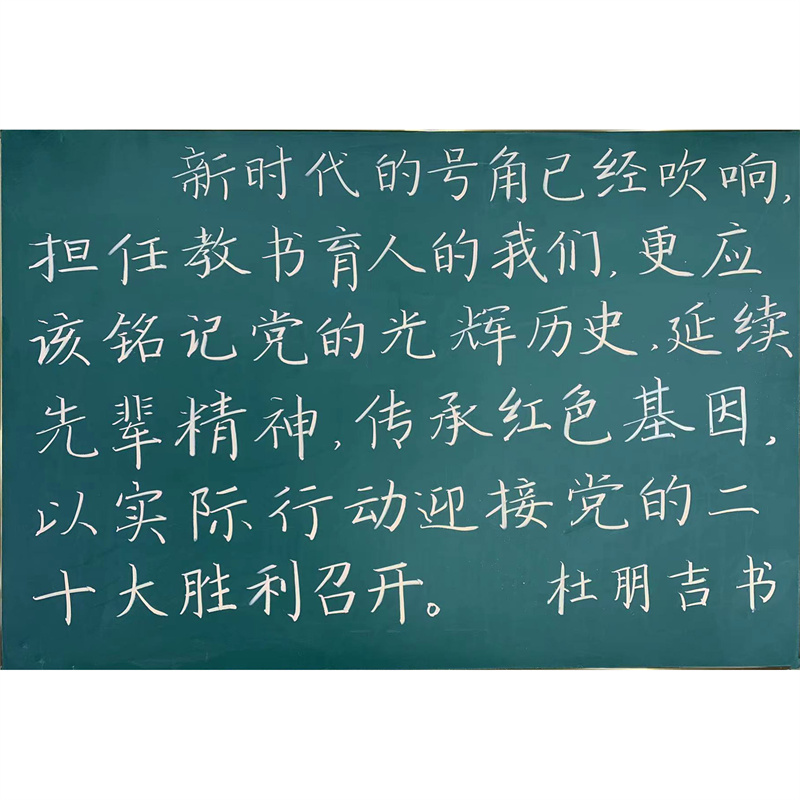 新时代的号角已经吹响,
担任教书育人的我们,更应
该铭记党的光辉历史,延续
先辈精神,传承红色基因,
以实际行动迎接党的二
十大胜利召开。 杜朋吉书